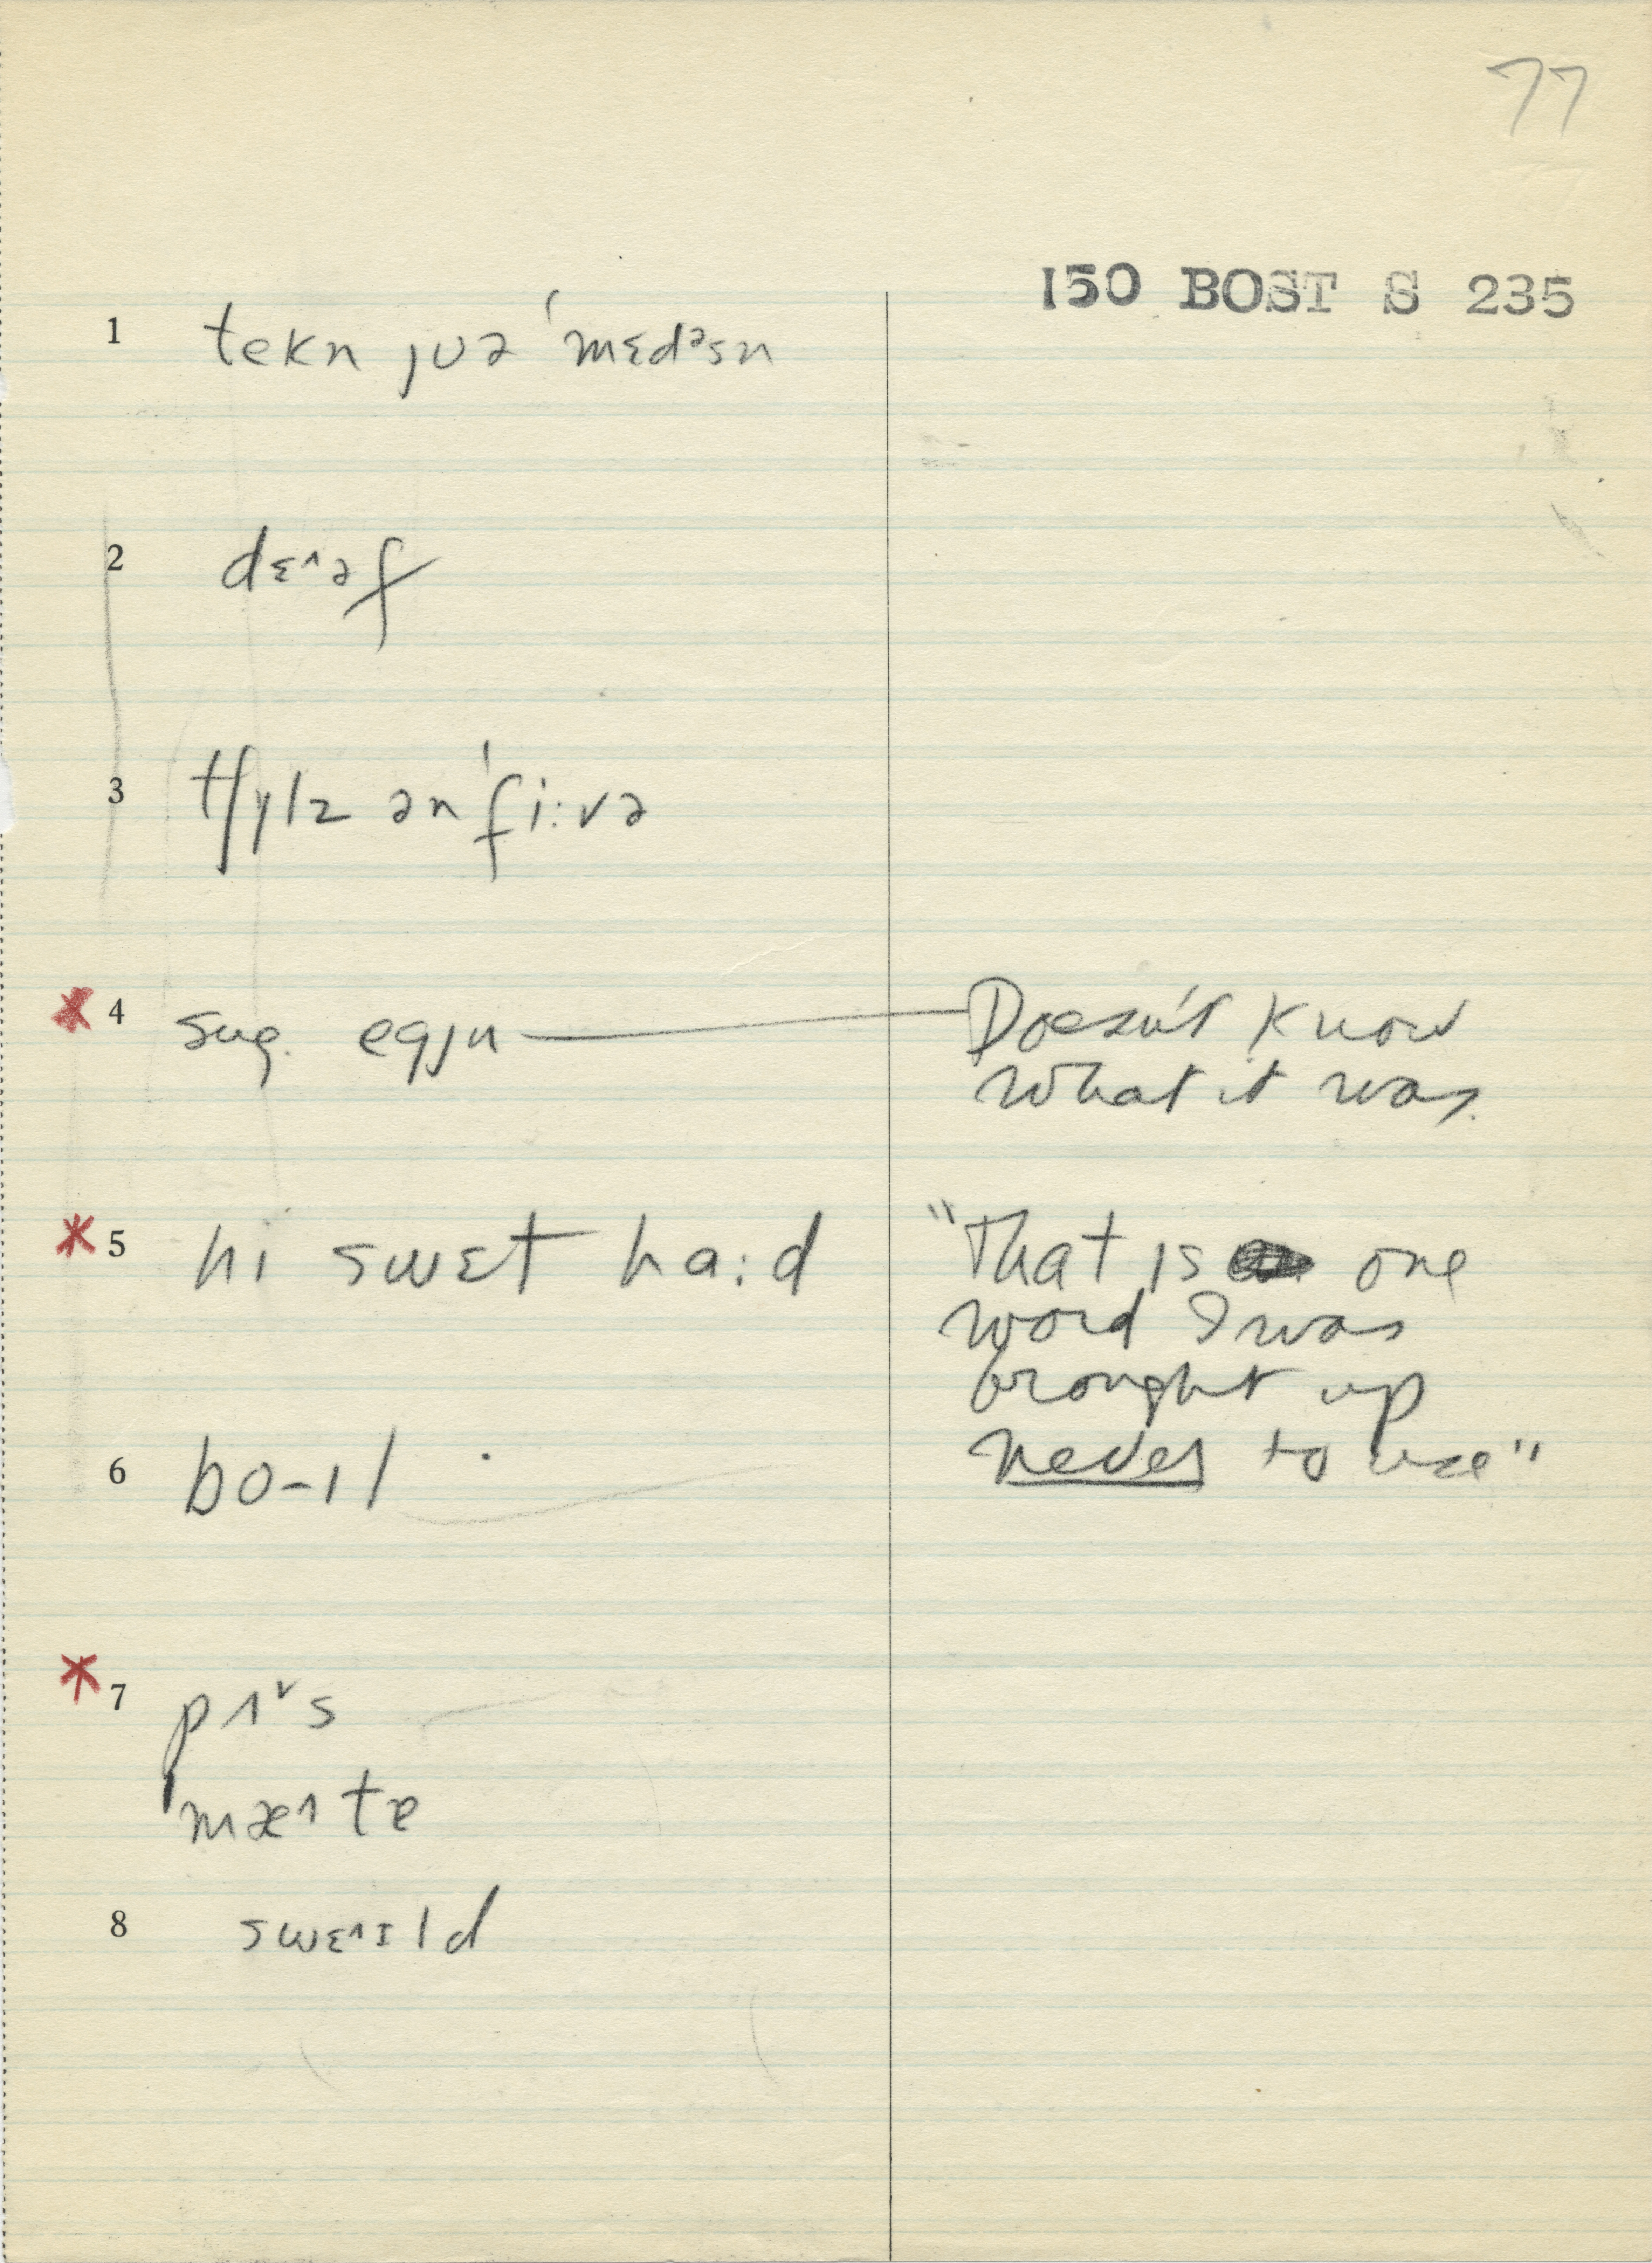 77
150 BOST S 235
1 tekn jʊə ˈmɛdᵊsn
2 dɛ˄əf
3 tʃɪlz ən ˈfi:və
* 4 sug. egjn — Doesn't know
what it was.
* 5 hi swɛt ha:d "That is one
word I was
brought up
never to use"
6 bo-ɪl
* 7 pʌ˅s
ˈmæ˄tə
8 swɛ˄ɪld